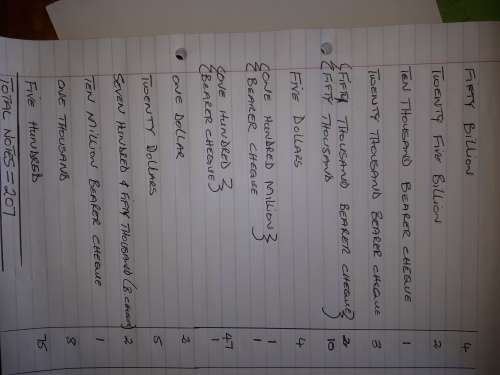 FIFTY BILLION 4
TWENTY FIVE BILLION 2
TEN THOUSAND BEARER CHEQUE 1
TWENTY THOUSAND BEARER CHEQUE 3
{FIFTY THOUSAND BEARER CHEQUE} 2
{FIFTY THOUSAND} 10
FIVE DOLLARS 4
{ONE HUNDRED MILLION} 1
{BEARER CHEQUE} 1
{ONE HUNDRED} 47
{BEARER CHEQUE} 1
ONE DOLLAR 2
TWENTY DOLLARS 5
SEVEN HUNDRED & FIFTY THOUSAND 2
TEN MILLION BEARER CHEQUE 1
ONE THOUSAND 8
FIVE HUNDRED 75
TOTAL NOTES = 207